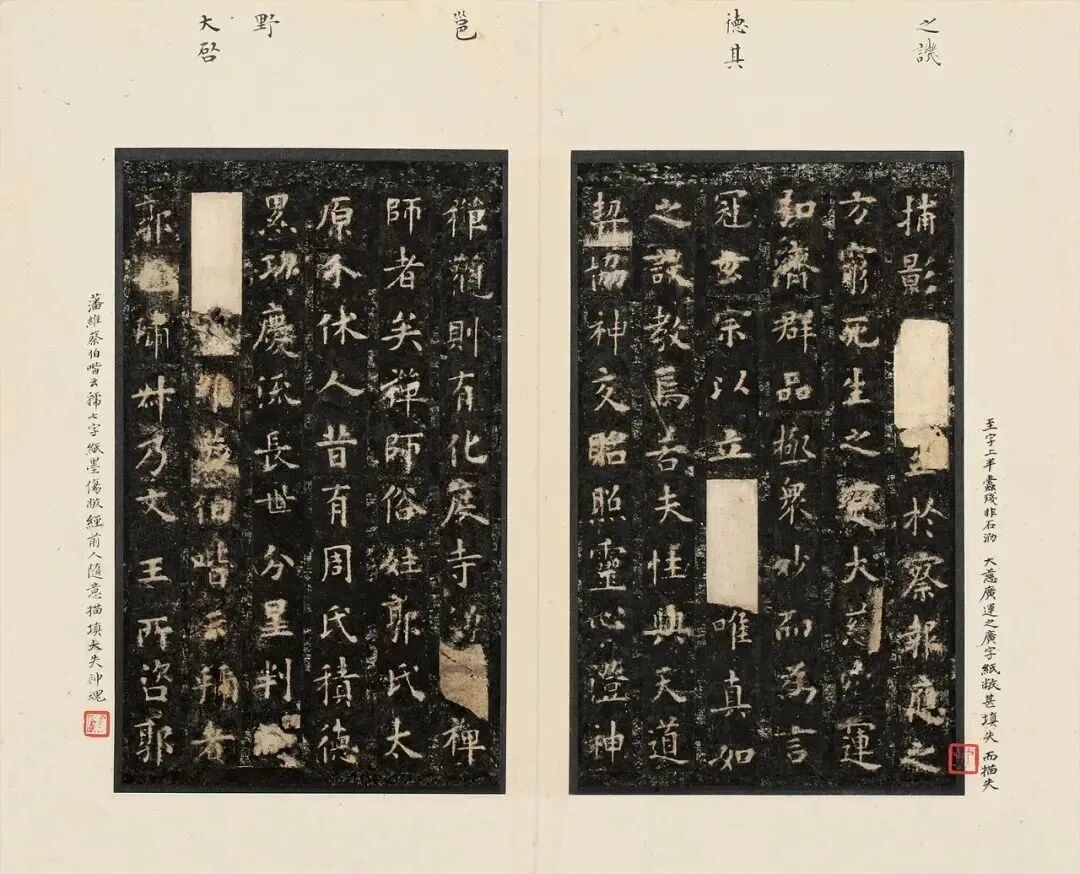 之譏
德其
邕
野
大啓
捕影至於察報應之
方窮死生之變大慈運
弘濟群品極衆妙而為言
冠玄宗以立唯真如
之設教焉若夫性與天道
契協神交貽照靈心澄神
至字上半蠹殘非石泐 大慈廣運之廣字紙敝甚填失而描失
禪則有化度寺禪
師者矣禪師俗姓郭氏太
原介休人昔有周氏積德
累功慶流長世分星判
維蔡伯喈云虢者
郭也虢叔乃文王所咨郭
藩維蔡伯喈云虢七字紙墨傷敝經前人隨意描填大失神魂